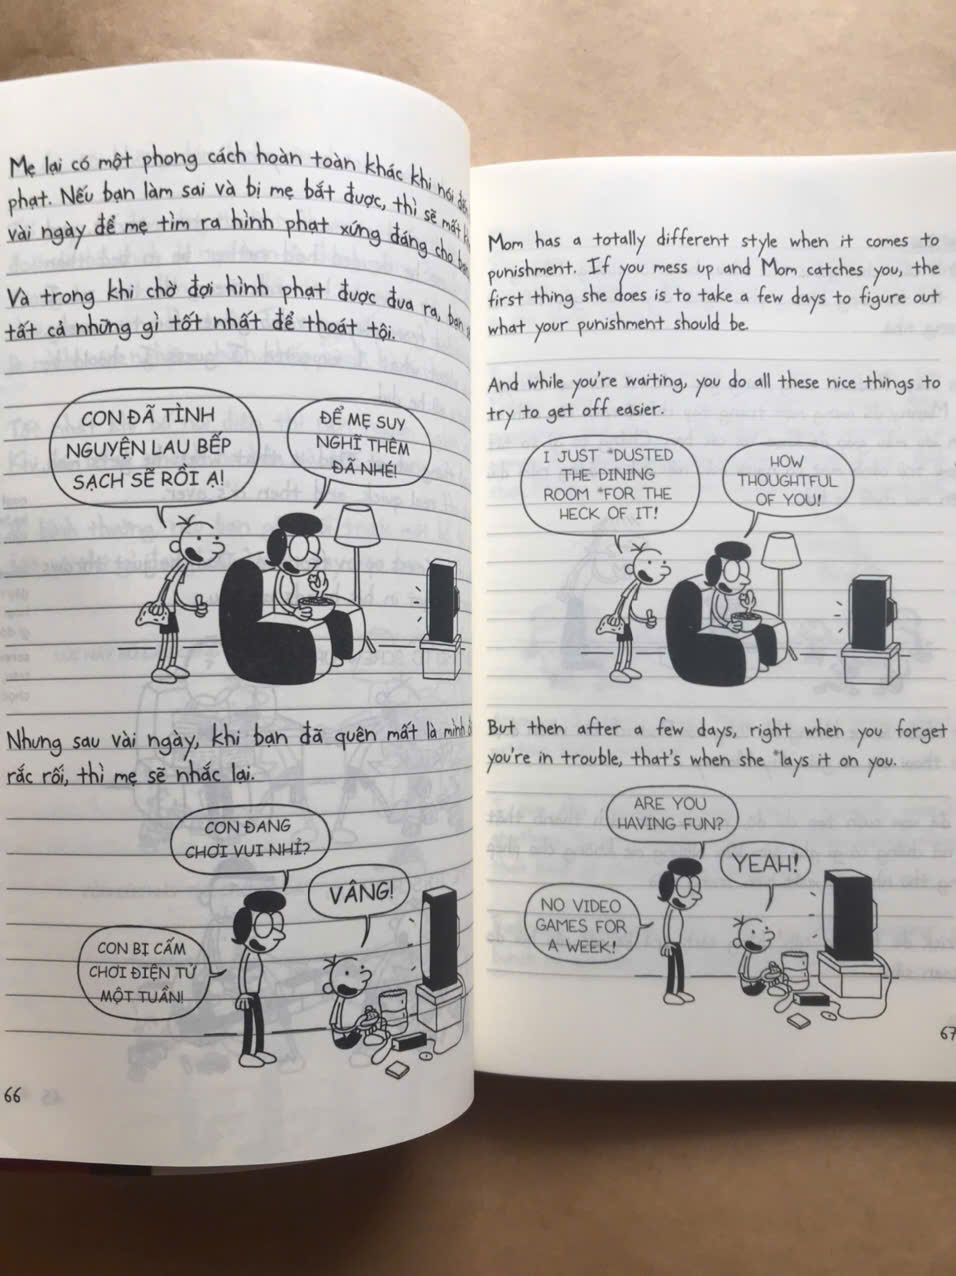 Mẹ lại có một phong cách hoàn toàn khác khi nói đến
phạt. Nếu bạn làm sai và bị mẹ bắt được, thì sẽ mất
vài ngày để mẹ tìm ra hình phạt xứng đáng cho bạn.
Và trong khi chờ đợi hình phạt được đưa ra, bạn
tất cả những gì tốt nhất để thoát tội.
CON ĐÃ TÌNH
NGUYỆN LAU BẾP
SẠCH SẼ RỒI Ạ!
ĐỂ MẸ SUY
NGHĨ THÊM
ĐÃ NHÉ!
Nhưng sau vài ngày, khi bạn đã quên mất là mình
rắc rối, thì mẹ sẽ nhắc lại.
CON ĐANG
CHƠI VUI NHỈ?
VÂNG!
CON BỊ CẤM
CHƠI ĐIỆN TỬ
MỘT TUẦN!
66
Mom has a totally different style when it comes to
punishment. If you mess up and Mom catches you, the
first thing she does is to take a few days to figure out
what your punishment should be.
And while you're waiting, you do all these nice things to
try to get off easier.
I JUST *DUSTED
THE DINING
ROOM *FOR THE
HECK OF IT!
HOW
THOUGHTFUL
OF YOU!
But then after a few days, right when you forget
you're in trouble, that's when she *lays it on you.
ARE YOU
HAVING FUN?
YEAH!
NO VIDEO
GAMES FOR
A WEEK!
67